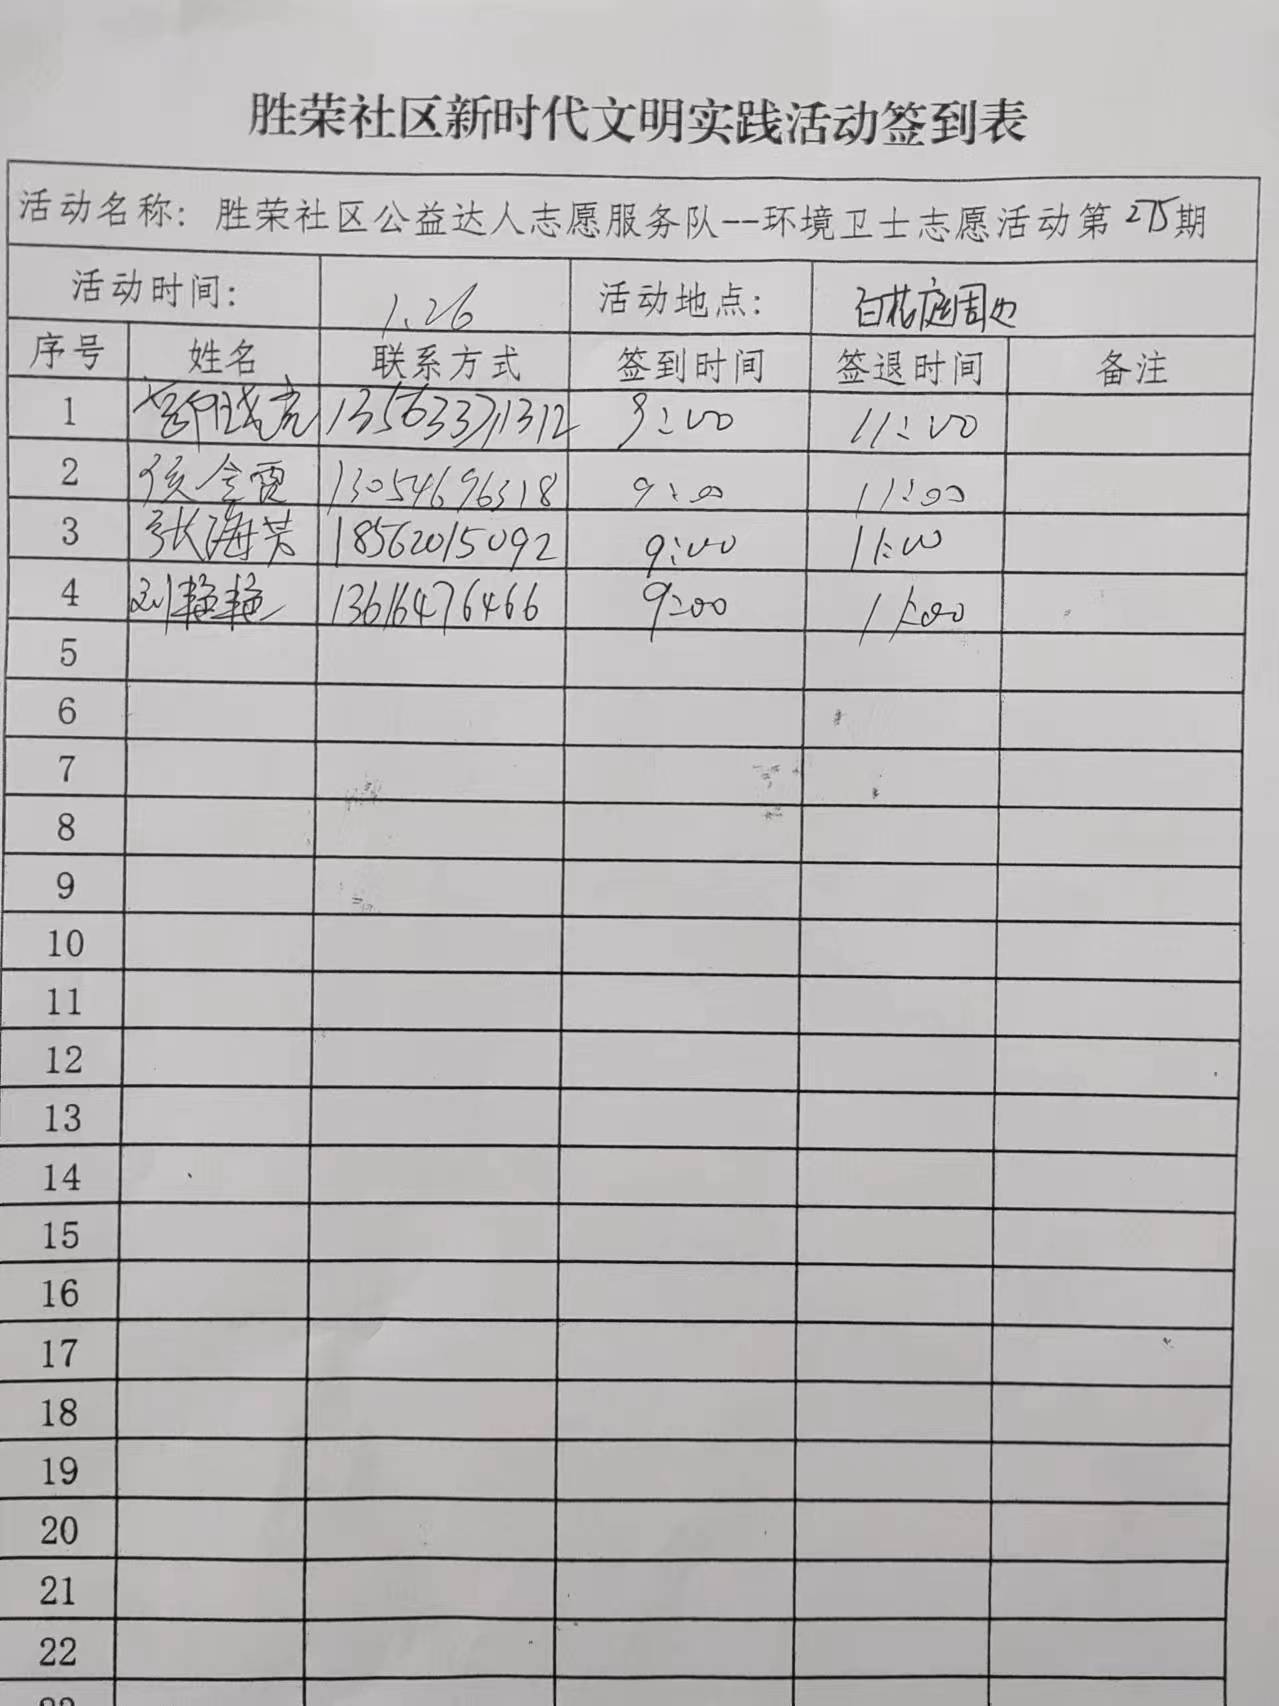 胜荣社区新时代文明实践活动签到表
活动名称：胜荣社区公益达人志愿服务队--环境卫士志愿活动第275期
活动时间： 1.26 活动地点： 百花庭周边
序号 姓名 联系方式 签到时间 签退时间 备注
1 13563371312 9:00 11:00
2 侯会霞 13054696318 9:00 11:00
3 张海芳 18562015092 9:00 11:00
4 刘艳艳 13616476466 9:00 11:00
5
6
7
8
9
10
11
12
13
14
15
16
17
18
19
20
21
22
23